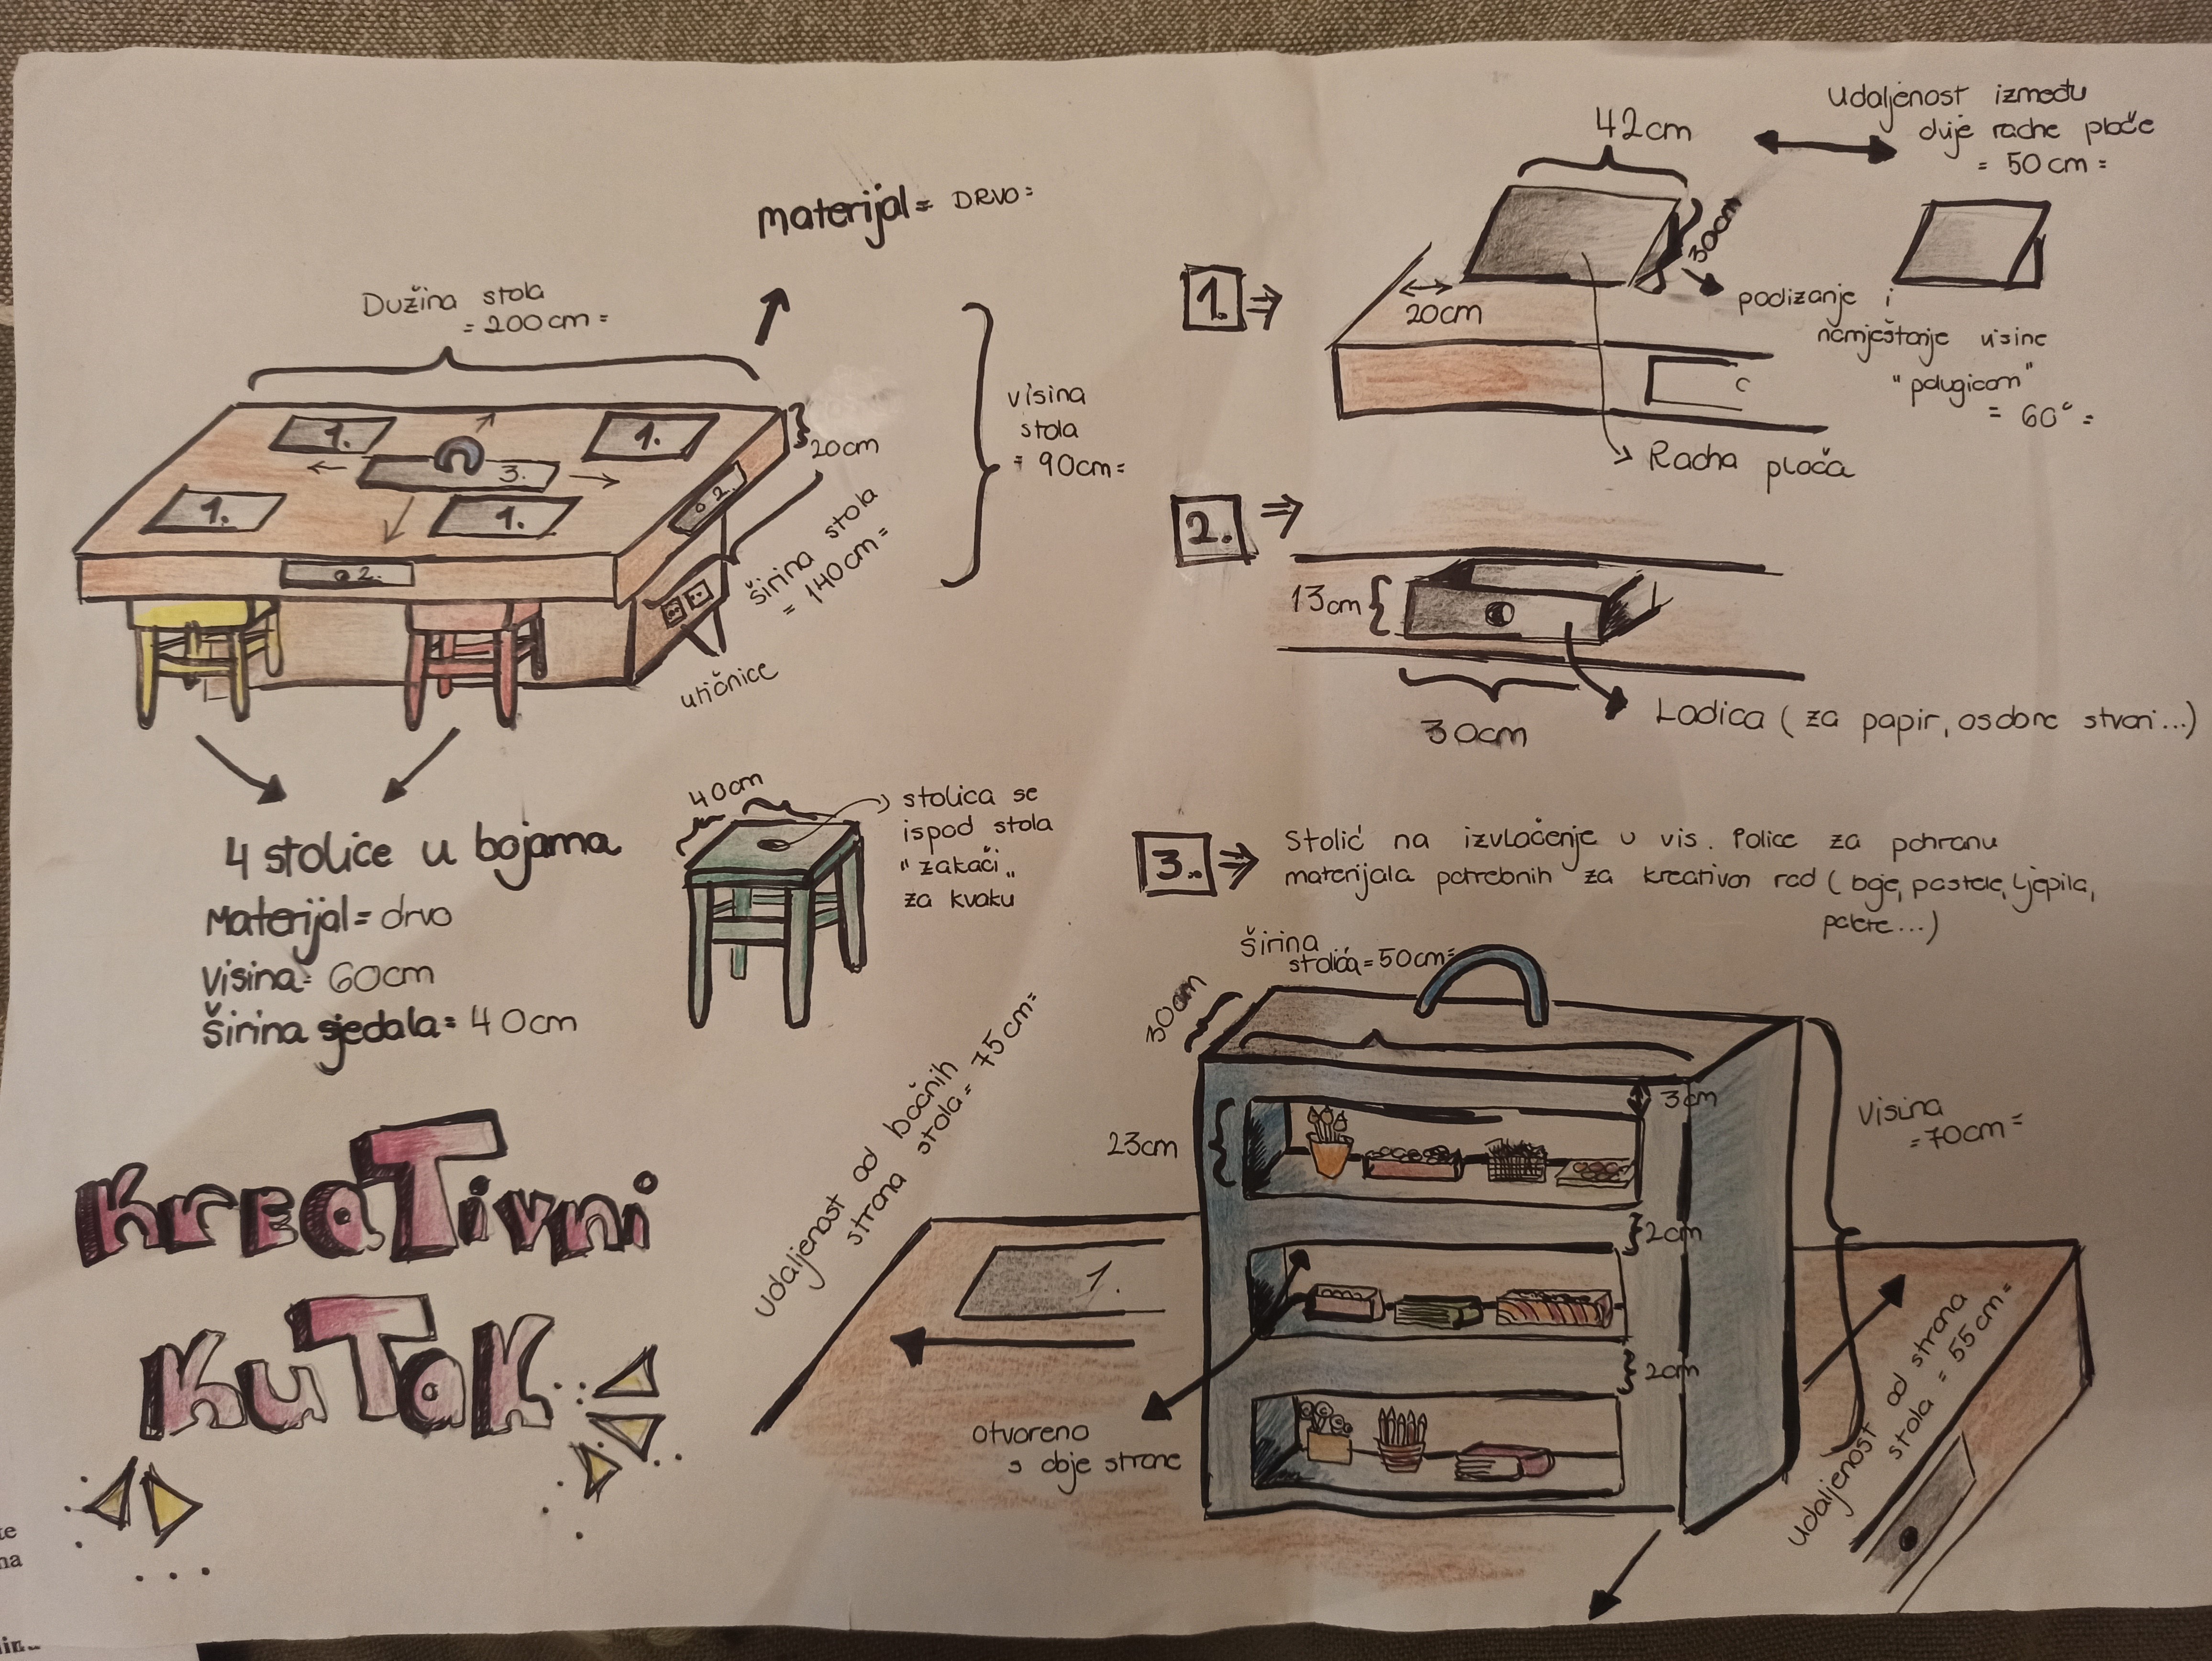 materijal = DRVO =
Dužina stola
= 200cm =
20cm
visina
stola
= 90cm =
širina stola
= 140cm =
utičnice
1.
1.
3.
1.
1.
2.
2.
4 stolice u bojama
Materijal = drvo
Visina = 60cm
Širina sjedala = 40cm
40cm
stolica se
ispod stola
"zakači"
za kvaku
KreaTivni
KuTak
1.
42cm
30cm
20cm
Udaljenost između
dvije radne ploče
= 50cm =
podizanje i
namještanje visine
"polugicom"
= 60° =
Radna ploča
2.
13cm
30cm
Ladica (za papir, osobne stvari...)
3.
Stolić na izvlačenje u vis. Police za pohranu
materijala potrebnih za kreativan rad (boje, pastele, ljepila,
palete...)
širina
stolića = 50cm =
30cm
3cm
23cm
2cm
2cm
Visina
= 70cm =
Udaljenost od bočnih
strana stola = 75cm =
1.
otvoreno
s obje strane
Udaljenost od strana
stola = 55cm =
te
na